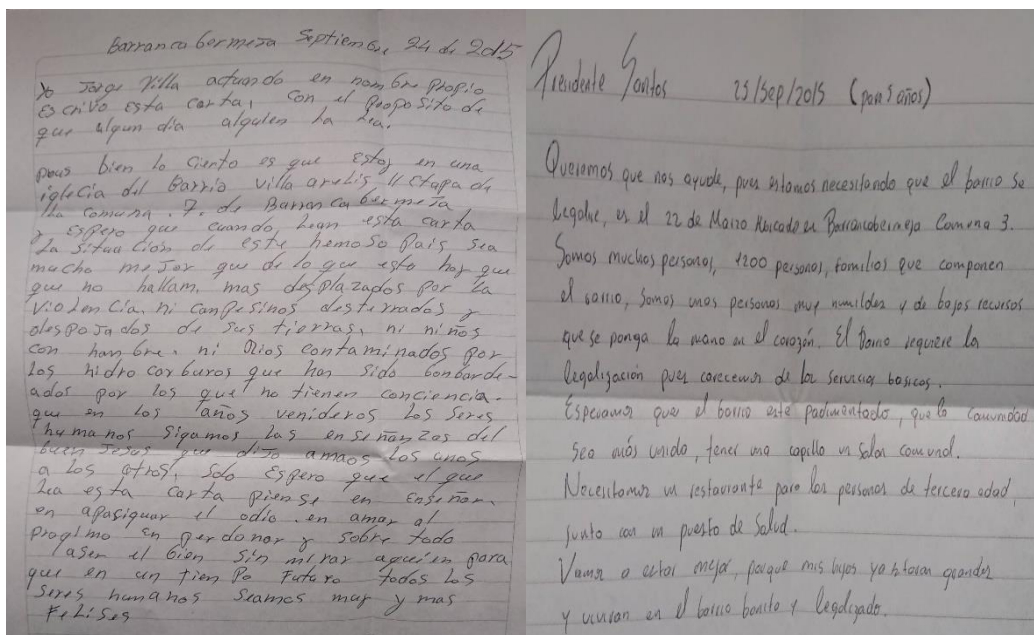 Barrancabermeja Septiembre 24 de 2015
Yo Jorge Villa actuando en nombre propio
Escrivo esta carta, con el proposito de
que algun dia alguien la lea.
pues bien lo ciento es que estoy en una
iglecia del Barrio villa arelis II Etapa de
la comuna .7. de Barrancabermeja
y espero que cuando lean esta carta
La situacion de este hemoso Pais sea
mucho mejor que de lo que esta hoy que
que no hallam, mas desplazados por la
violencia, ni canpesinos desterrados y
despojados de sus tierras, ni niños
con hanbre, ni Rios contaminados por
los hidrocarburos que han sido bonbarde-
ados por los que no tienen conciencia.
que en los años venideros los seres
humanos sigamos las enseñanzas del
buen Jesus que dijo amaos los unos
a los otros, solo espero que el que
lea esta carta piense en Enseñar.
en apasiguar el odio. en amar al
progimo en perdonar y sobre todo
aser el bien sin mirar aquien para
que en un tienpo Futuro todos los
seres humanos seamos muy y mas
Felises
Presidente Santos 25/Sep/2015 (para 5 años)
Queriamos que nos ayude, pues estamos necesitando que el barrio se
legalice, es el 22 de Marzo Ubicado en Barrancabermeja Comuna 3.
Somos muchas personas, 1200 personas, familias que componen
el barrio, Somos unas personas muy humildes y de bajos recursos
que se ponga la mano en el corazón. El Barrio requiere la
legalización pues carecemos de los servicios basicos.
Esperamos que el barrio este padimentado, que la comunidad
sea más unida, tener una capilla un salon comunal.
Necesitamos un restaurante para las personas de tercera edad,
junto con un puesto de salud.
Vamos a estar mejor, porque mis hijos ya estaran grandes
y viviran en el barrio bonito y legalizado.